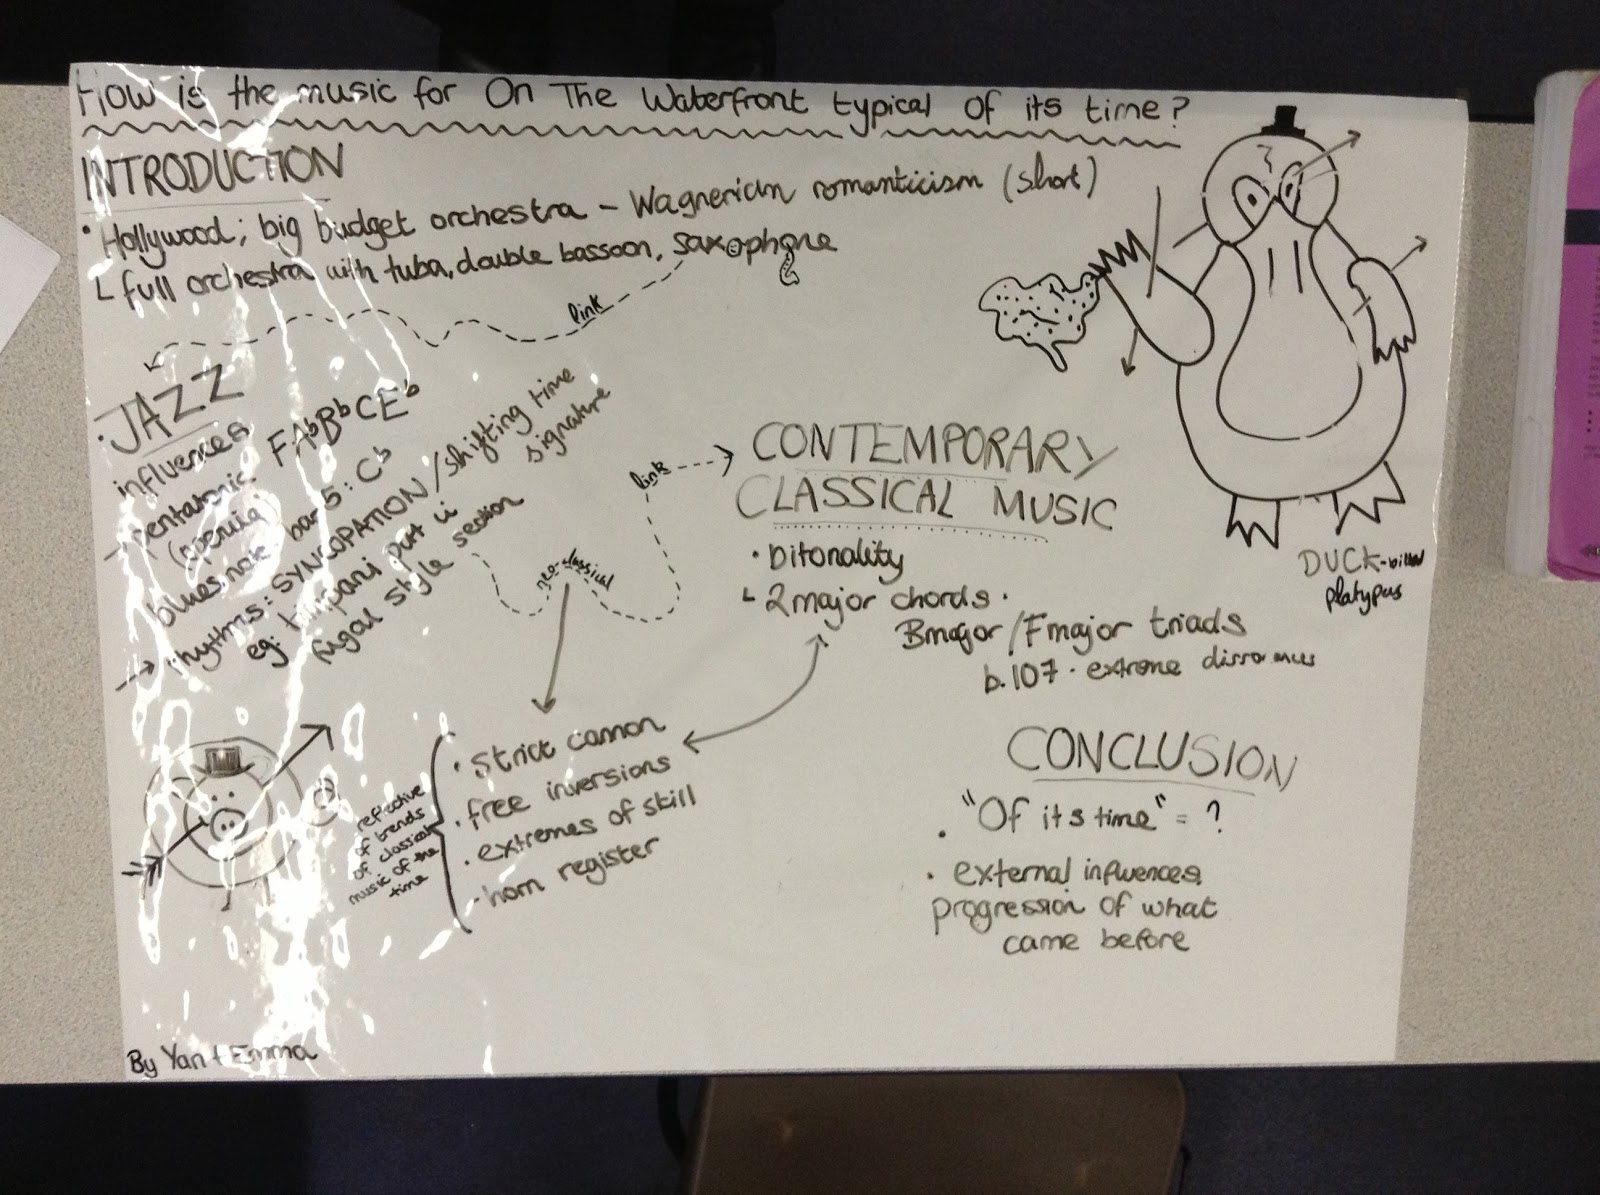 How is the music for On The Waterfront typical of its time?
INTRODUCTION
• Hollywood; big budget orchestra - Wagnerian romanticism (short)
L full orchestra with tuba, double bassoon, saxophone
link
• JAZZ
influences
- pentatonic FAbBbCEb
(opening)
blues note bar 5: Cb
→ rhythms: SYNCOPATION / shifting time
signature
eg. timpani part in
fugal style section
neo-classical
link
CONTEMPORARY
CLASSICAL MUSIC
• bitonality
L 2 major chords.
B major / F major triads
b.107 • extreme dissonances
• strict cannon
• free inversions
• extremes of skill
- horn register
reflective
of trends
of classical
music of the
time
CONCLUSION
• "Of its time" = ?
• external influences
progression of what
came before
DUCK-billed
platypus
By Yan + Emma